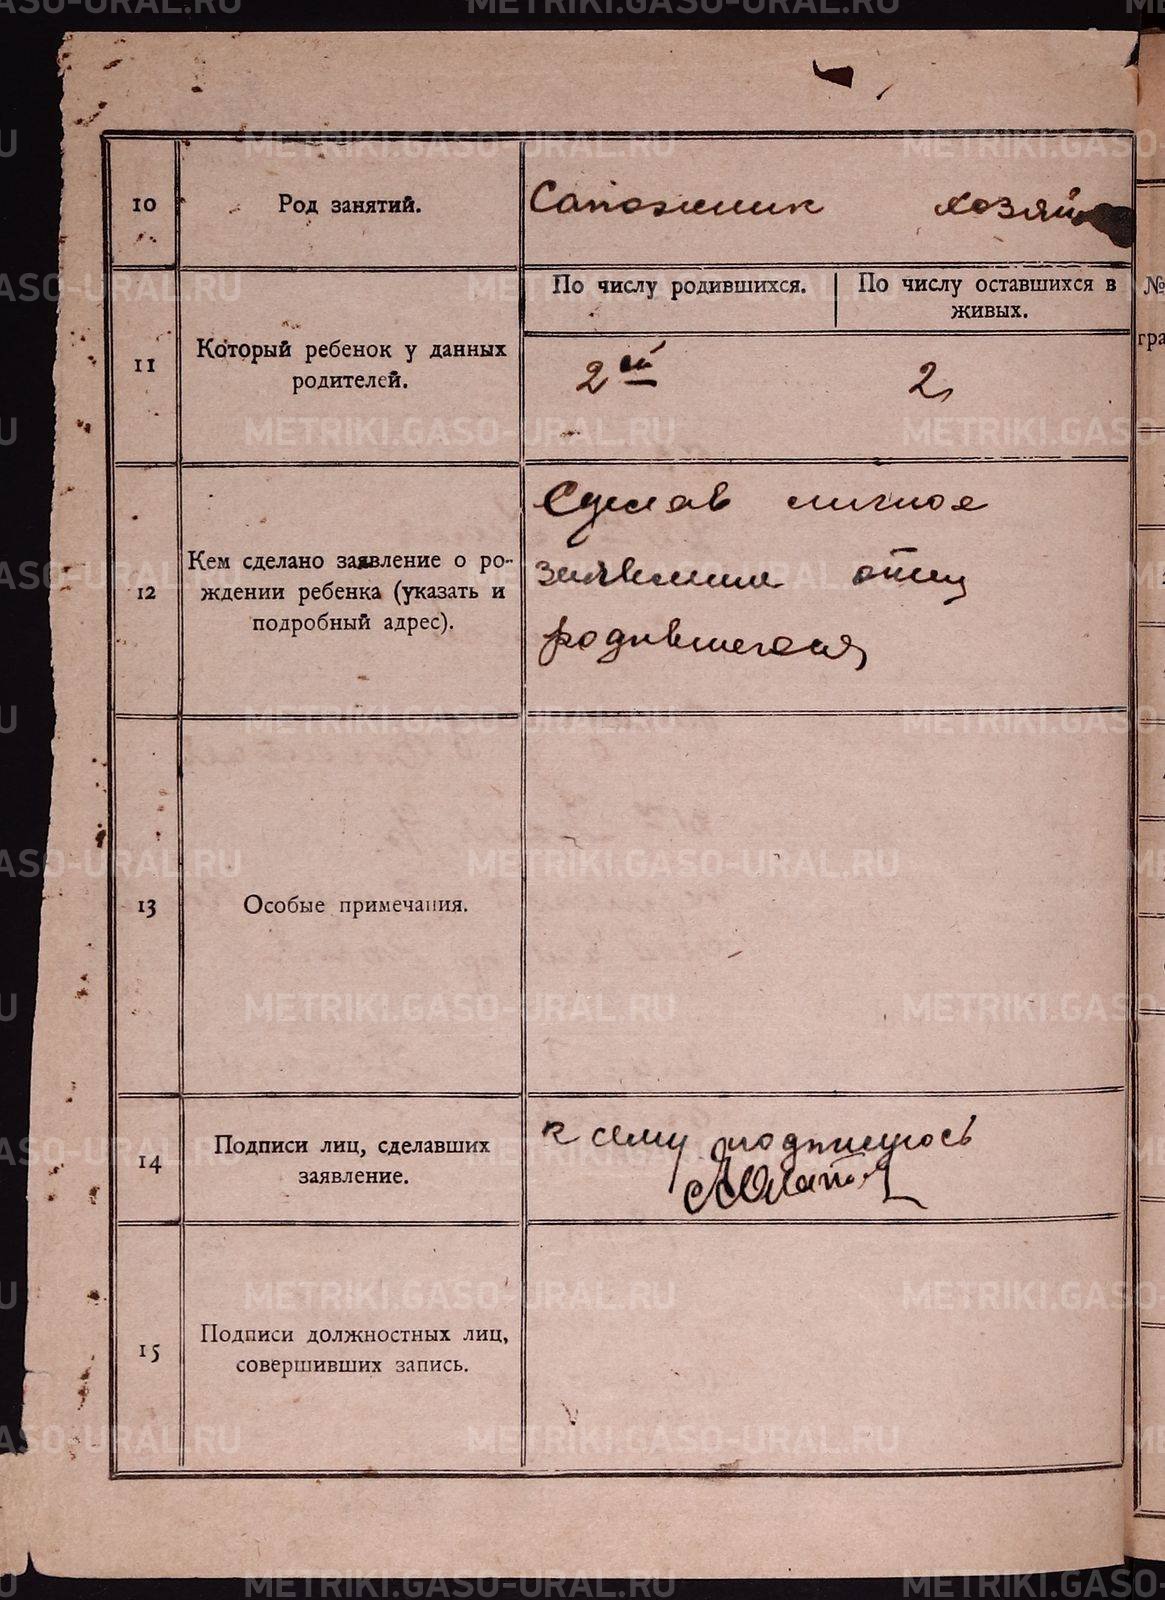 10
Род занятий.
Сапожник хозяй
11
Который ребенок у данных
родителей.
По числу родившихся.
По числу оставшихся в
живых.
2ой
2
12
Кем сделано заявление о ро-
ждении ребенка (указать и
подробный адрес).
Сделав личное
заявление отец
родившегося
13
Особые примечания.
14
Подписи лиц, сделавших
заявление.
к сему подпишусь
15
Подписи должностных лиц,
совершивших запись.
№
гра
METRIKI.GASO-URAL.RU